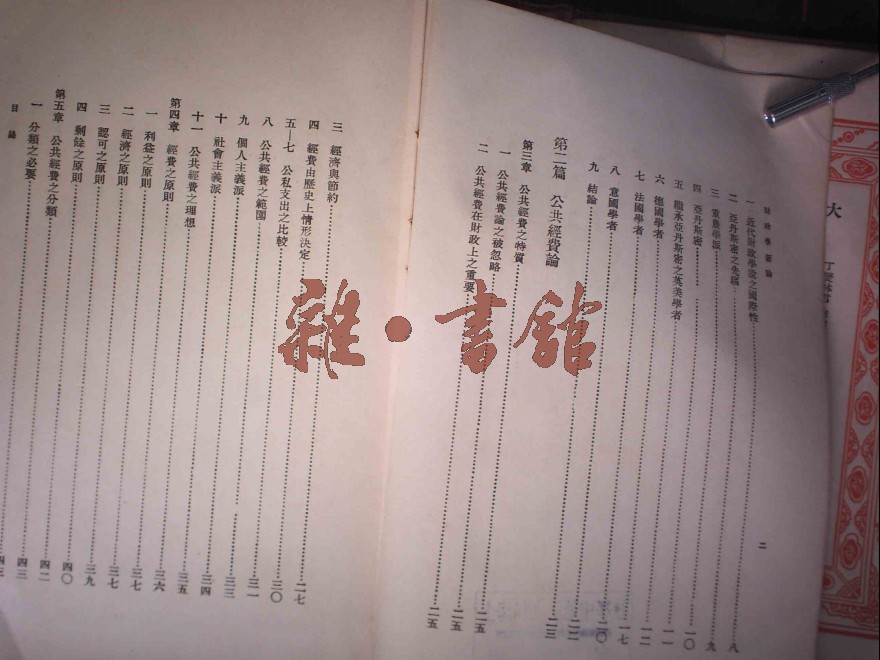 二
一 近代財政學說之國際性 八
二 亞丹斯密之先驅 九
三 重農學派 一〇
四 亞丹斯密 一一
五 繼承亞丹斯密之英美學者 一二
六 德國學者 一七
七 法國學者 二〇
八 意國學者 二二
九 結論 二三
第二篇 公共經費論
第三章 公共經費之特質 二五
一 公共經費論之被忽略 二五
二 公共經費在財政上之重要 二五
三 經濟與節約 二七
四 經費由歷史上情形決定 三〇
五—七 公私支出之比較 三一
八 公共經費之範圍 三三
九 個人主義派 三四
十 社會主義派 三五
十一 公共經費之理想 三六
第四章 經費之原則 三七
一 利益之原則 三七
二 經濟之原則 三九
三 認可之原則 四〇
四 剩餘之原則 四二
第五章 公共經費之分類 四三
一 分類之必要 四三
目錄
雜·書館
大